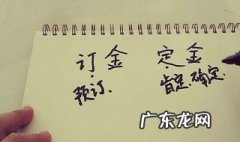 订金 定金
预订. 肯定.确定.
广东龙网